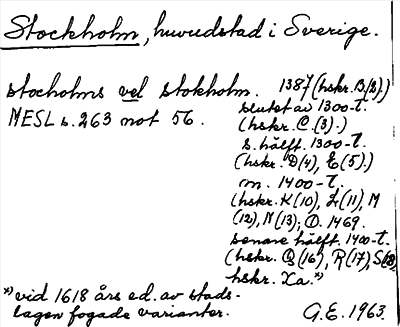 Stockholm, huvudstad i Sverige.
stocholms vel stokholm. 1387 (hskr. B(2))
MESL s. 263 not 56. slutet av 1300-t.
(hskr. C.(3).)
s. hälft. 1300-t.
(hskr. D(4), E(5).)
m. 1400-t.
(hskr. K(10), L(11), M
(12), N(13); O. 1469.
senare hälft. 1400-t.
(hskr. Q(16), R(17), S(18)
hskr. Xa. x)
x) vid 1618 års ed. av stads-
lagen fogade varianter. G.E. 1963.